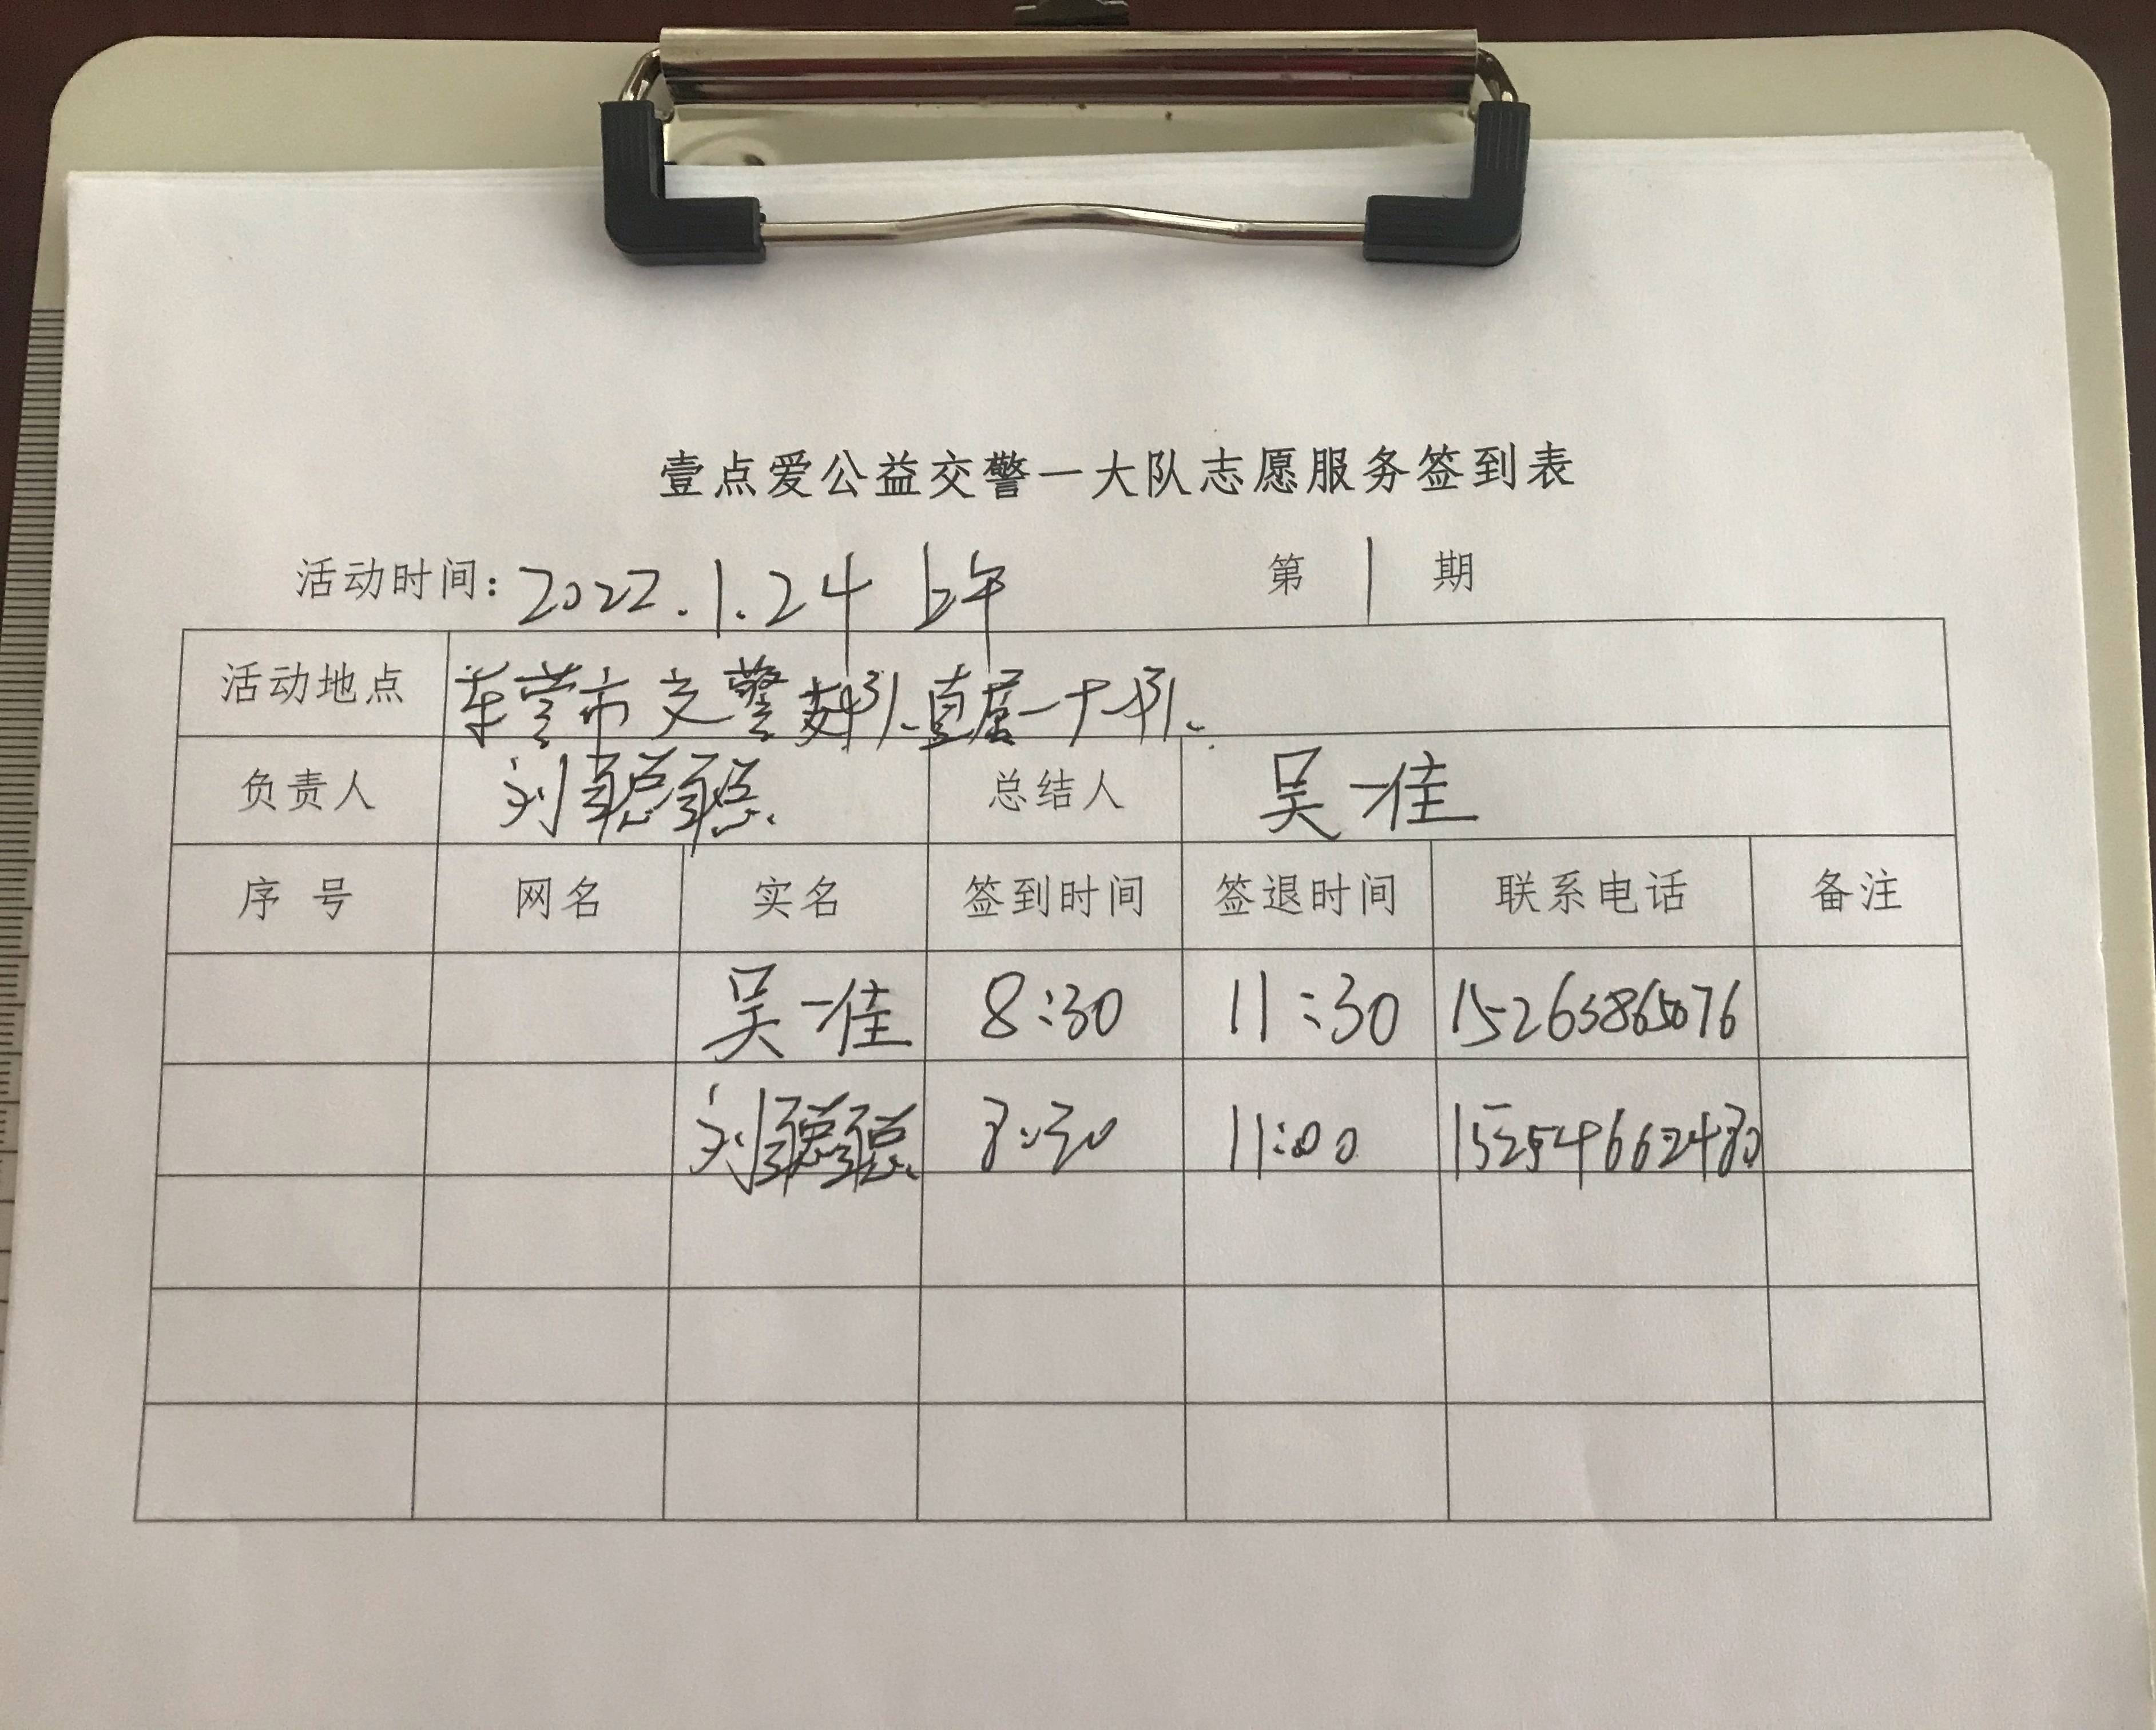 壹点爱公益交警一大队志愿服务签到表
活动时间：2022.1.24 上午 第 1 期
活动地点 东营市交警支队直属一大队
负责人 刘聪聪 总结人 吴一佳
序号 网名 实名 签到时间 签退时间 联系电话 备注
吴一佳 8:30 11:30 15263865076
刘聪聪 8:30 11:00 15254662480